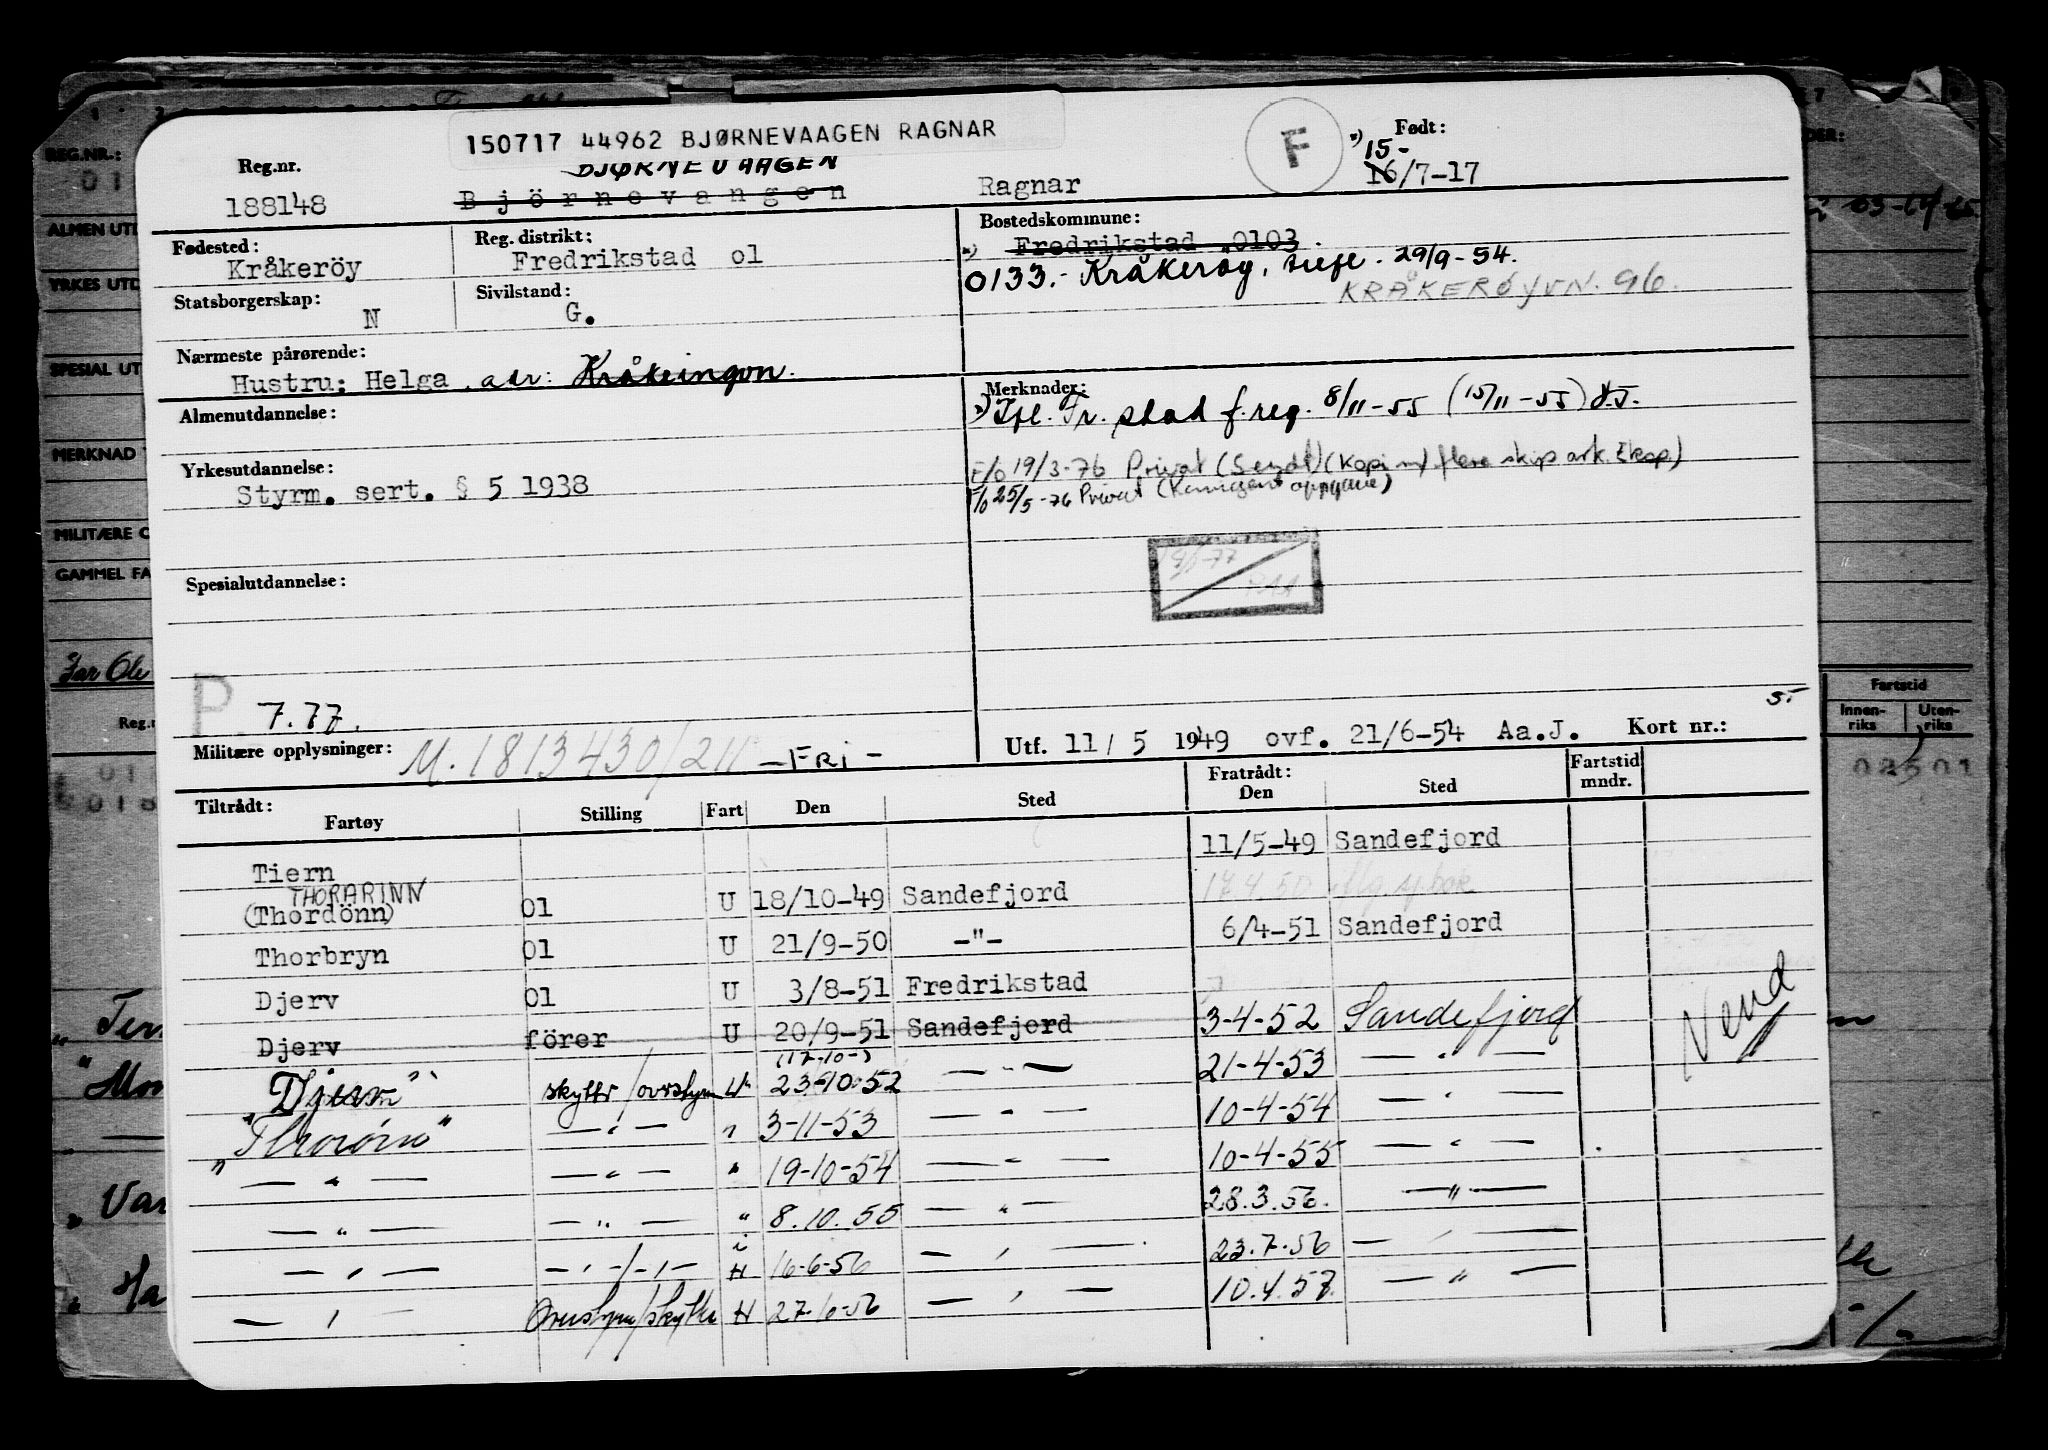 150717 44962 BJØRNEVAAGEN RAGNAR
F
Født:
15-
16/7-17
Reg.nr.
188148
BJØRNEVAAGEN
Björnevangen
Ragnar
Fødested:
Kråkeröy
Reg. distrikt:
Fredrikstad 01
Bostedskommune:
Fredrikstad 0103.
0133.- Kråkerøy, 29/9-54.
KRÅKERØYVN. 96.
Statsborgerskap:
N
Sivilstand:
G.
Nærmeste pårørende:
Hustru: Helga, adr:
Merknader:
Fr. stad f. reg. 8/11-55 (15/11-55)
F/o 19/3-76 Privat (Sendt) (Kopi m/ flere skip ark.
F/o 25/5-76 Privat
Almenutdannelse:
Yrkesutdannelse:
Styrm. sert. § 5 1938
Spesialutdannelse:
P 7.77.
Militære opplysninger: M. 1813430/211 - FRI -
Utf. 11/5 1949 ovf. 21/6-54 Aa.J. Kort nr.: 5-
Tiltrådt: Fartøy Stilling Fart Den Sted Fratrådt: Den Sted Fartstid mndr.
Tiern 11/5-49 Sandefjord
THORARINN
(Thordönn) 01 U 18/10-49 Sandefjord 17.4.50
Thorbryn 01 U 21/9-50 -"- 6/4-51 Sandefjord
Djerv 01 U 3/8-51 Fredrikstad
Djerv förer U 20/9-51 Sandefjord 3-4-52 Sandefjord
(17-10-)
Djerv" skytter/ovrstym U 23-10-52 — " — 21-4-53 — " —
"Thorörn" — " — " 3-11-53 — " — 10-4-54 — " —
" — " — — " — " 19-10-54 — " — 10-4-55 — " —
— " — — " — " 8.10.55 — " — 28.3.56. — " —
— " — — " —/— " — H 16-6-56 — " — 23.7.56 — " —
— " — Overstyrm/skytter H 27-10-56 — " — 10.4.57. — " —
Vend
REG.NR.:
ALMEN UTD
YRKES UTD
SPESIAL UT
MERKNAD
MILITÆRE O
GAMMEL FA
Reg.n
Fartstid
Innen-riks
Uten-riks
02501